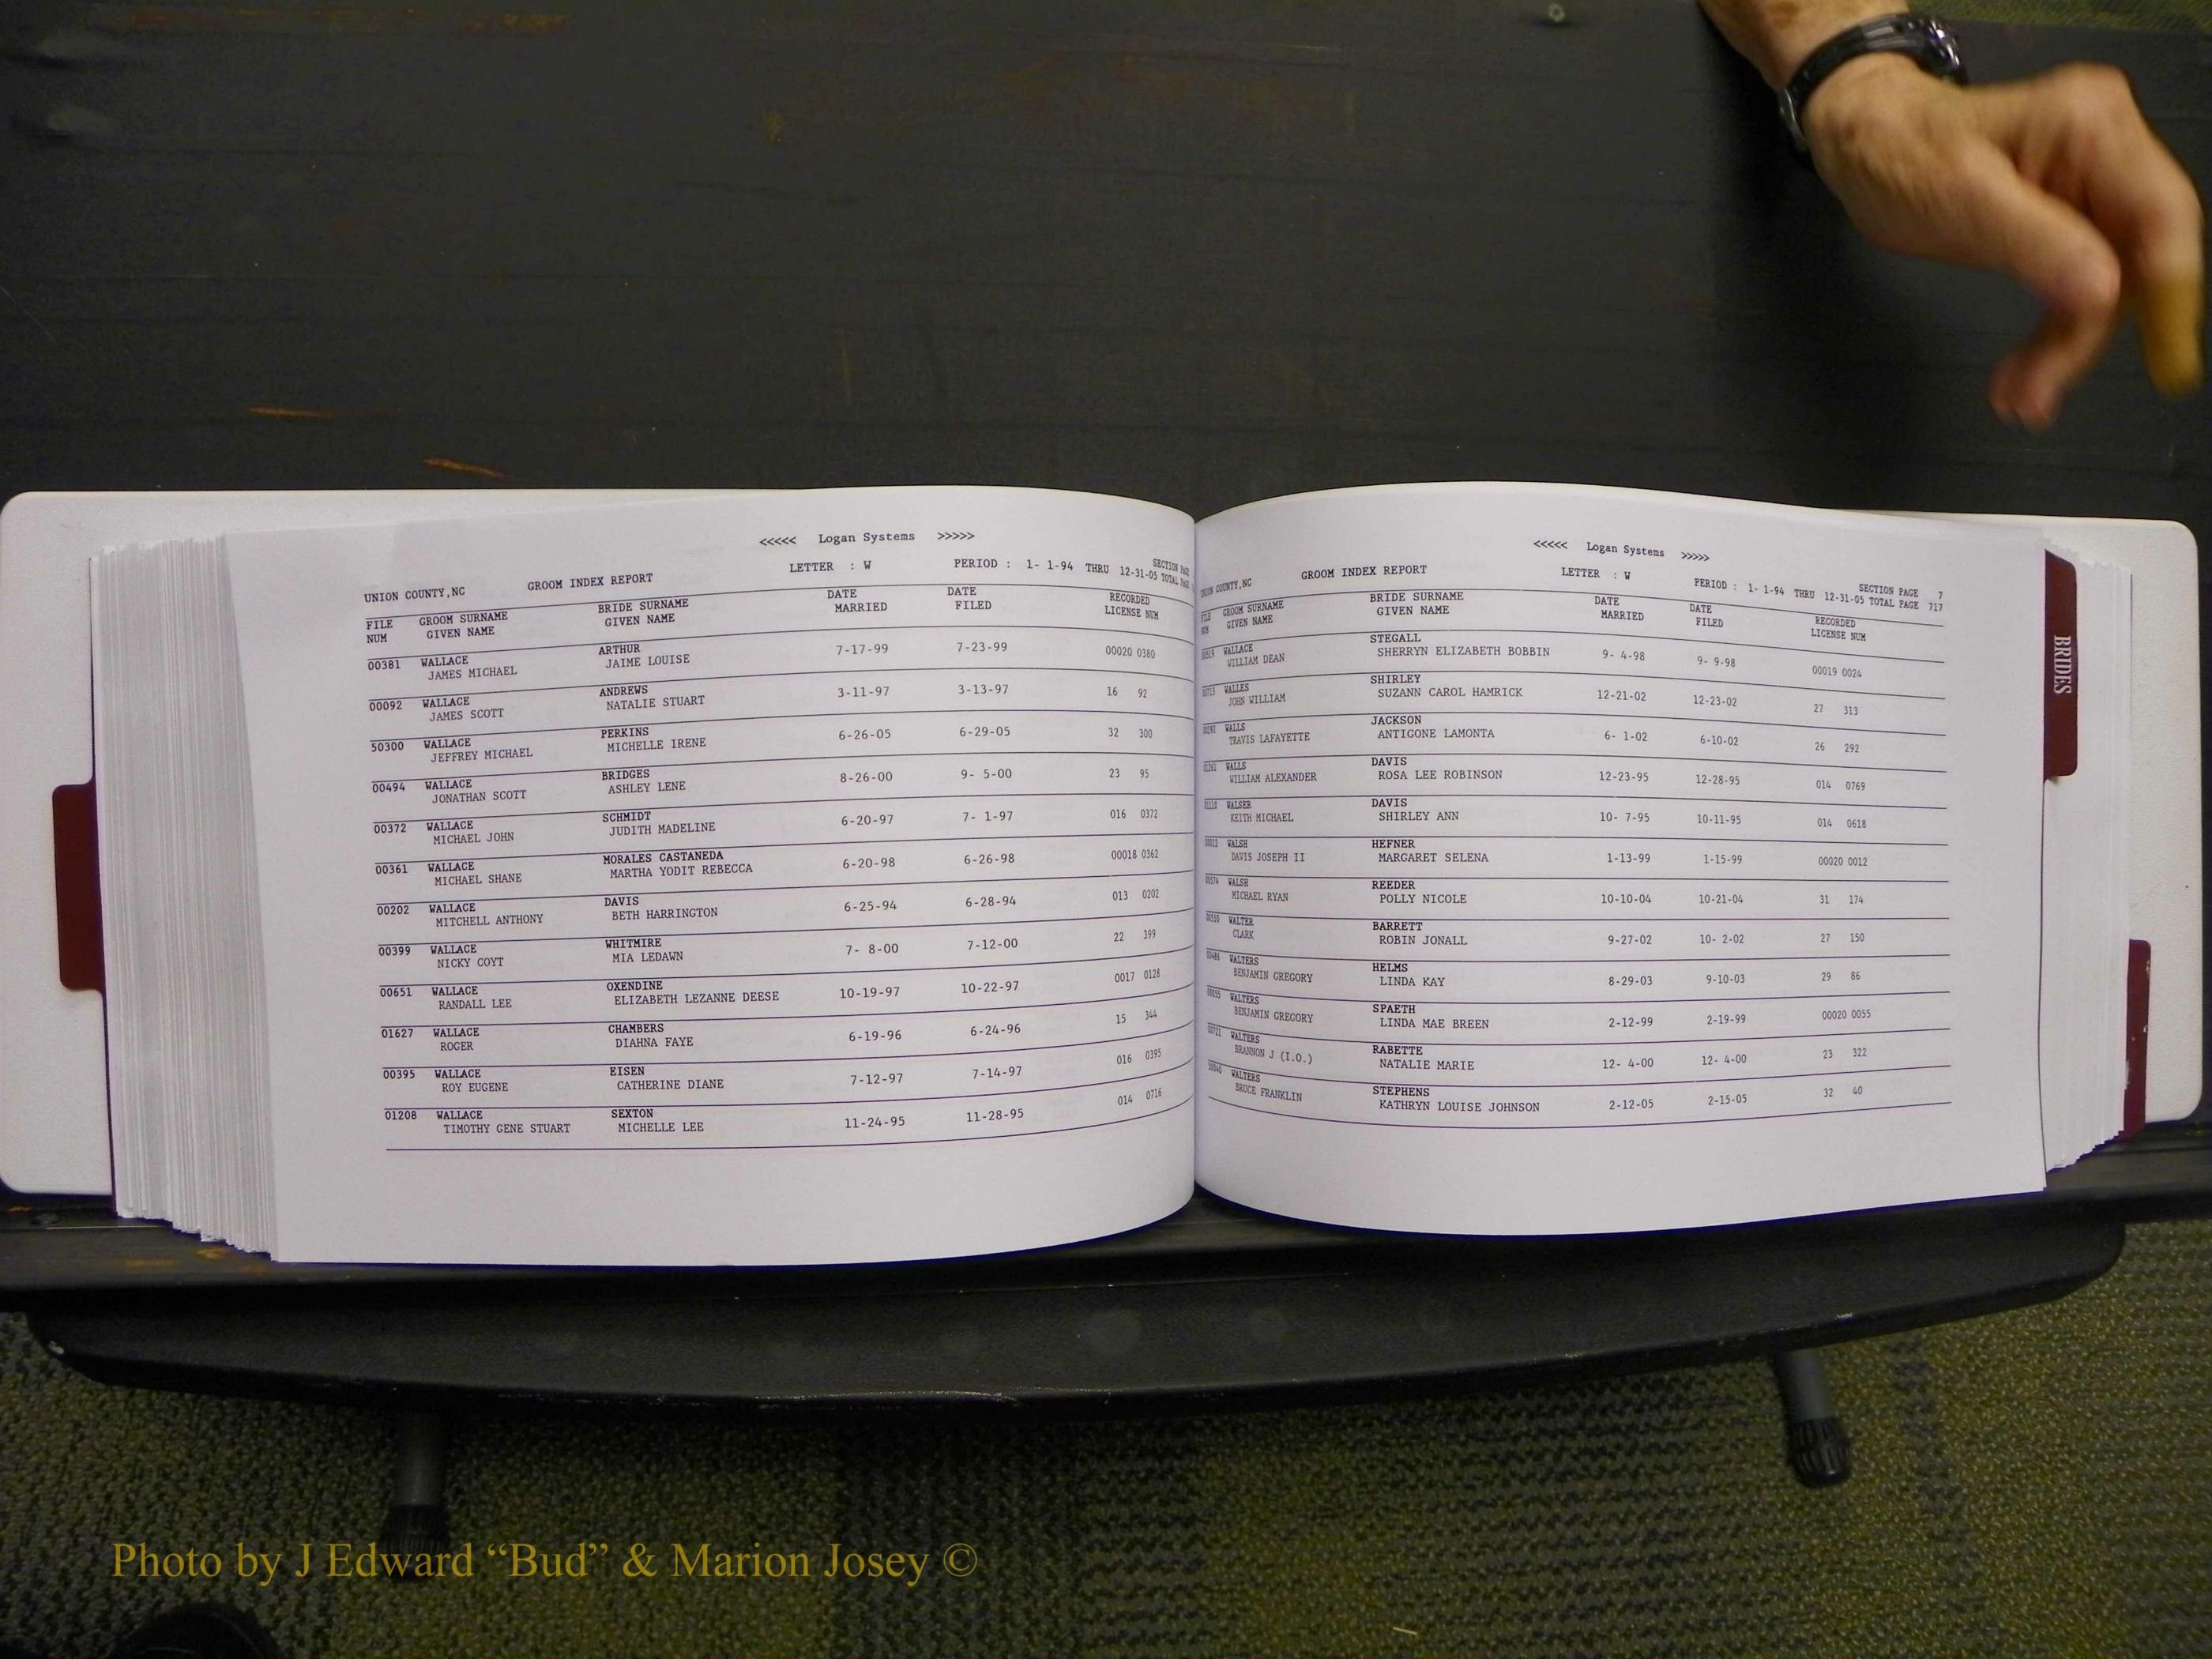 <<<<< Logan Systems >>>>>
UNION COUNTY,NC GROOM INDEX REPORT LETTER : W PERIOD : 1- 1-94 THRU 12-31-05 SECTION TOTAL
FILE NUM GROOM SURNAME GIVEN NAME BRIDE SURNAME GIVEN NAME DATE MARRIED DATE FILED RECORDED LICENSE NUM
00381 WALLACE ARTHUR 7-17-99 7-23-99 00020 0380
JAMES MICHAEL JAIME LOUISE
00092 WALLACE ANDREWS 3-11-97 3-13-97 16 92
JAMES SCOTT NATALIE STUART
50300 WALLACE PERKINS 6-26-05 6-29-05 32 300
JEFFREY MICHAEL MICHELLE IRENE
00494 WALLACE BRIDGES 8-26-00 9- 5-00 23 95
JONATHAN SCOTT ASHLEY LENE
00372 WALLACE SCHMIDT 6-20-97 7- 1-97 016 0372
MICHAEL JOHN JUDITH MADELINE
00361 WALLACE MORALES CASTANEDA 6-20-98 6-26-98 00018 0362
MICHAEL SHANE MARTHA YODIT REBECCA
00202 WALLACE DAVIS 6-25-94 6-28-94 013 0202
MITCHELL ANTHONY BETH HARRINGTON
00399 WALLACE WHITMIRE 7- 8-00 7-12-00 22 399
NICKY COYT MIA LEDAWN
00651 WALLACE OXENDINE 10-19-97 10-22-97 0017 0128
RANDALL LEE ELIZABETH LEZANNE DEESE
01627 WALLACE CHAMBERS 6-19-96 6-24-96 15 344
ROGER DIAHNA FAYE
00395 WALLACE EISEN 7-12-97 7-14-97 016 0395
ROY EUGENE CATHERINE DIANE
01208 WALLACE SEXTON 11-24-95 11-28-95 014 0716
TIMOTHY GENE STUART MICHELLE LEE
<<<<< Logan Systems >>>>>
UNION COUNTY,NC GROOM INDEX REPORT LETTER : W PERIOD : 1- 1-94 THRU 12-31-05 SECTION PAGE 7 TOTAL PAGE 717
GROOM SURNAME GIVEN NAME BRIDE SURNAME GIVEN NAME DATE MARRIED DATE FILED RECORDED LICENSE NUM
WALLACE STEGALL 9- 4-98 9- 9-98 00019 0024
WILLIAM DEAN SHERRYN ELIZABETH BOBBIN
WALLES SHIRLEY 12-21-02 12-23-02 27 313
JOHN WILLIAM SUZANN CAROL HAMRICK
WALLS JACKSON 6- 1-02 6-10-02 26 292
TRAVIS LAFAYETTE ANTIGONE LAMONTA
WALLS DAVIS 12-23-95 12-28-95 014 0769
WILLIAM ALEXANDER ROSA LEE ROBINSON
WALSER DAVIS 10- 7-95 10-11-95 014 0618
KEITH MICHAEL SHIRLEY ANN
WALSH HEFNER 1-13-99 1-15-99 00020 0012
DAVIS JOSEPH II MARGARET SELENA
WALSH REEDER 10-10-04 10-21-04 31 174
MICHAEL RYAN POLLY NICOLE
WALTER BARRETT 9-27-02 10- 2-02 27 150
CLARK ROBIN JONALL
WALTERS HELMS 8-29-03 9-10-03 29 86
BENJAMIN GREGORY LINDA KAY
WALTERS SPAETH 2-12-99 2-19-99 00020 0055
BENJAMIN GREGORY LINDA MAE BREEN
WALTERS RABETTE 12- 4-00 12- 4-00 23 322
BRANNON J (I.O.) NATALIE MARIE
WALTERS STEPHENS 2-12-05 2-15-05 32 40
BRUCE FRANKLIN KATHRYN LOUISE JOHNSON
BRIDES
Photo by J Edward “Bud” & Marion Josey ©